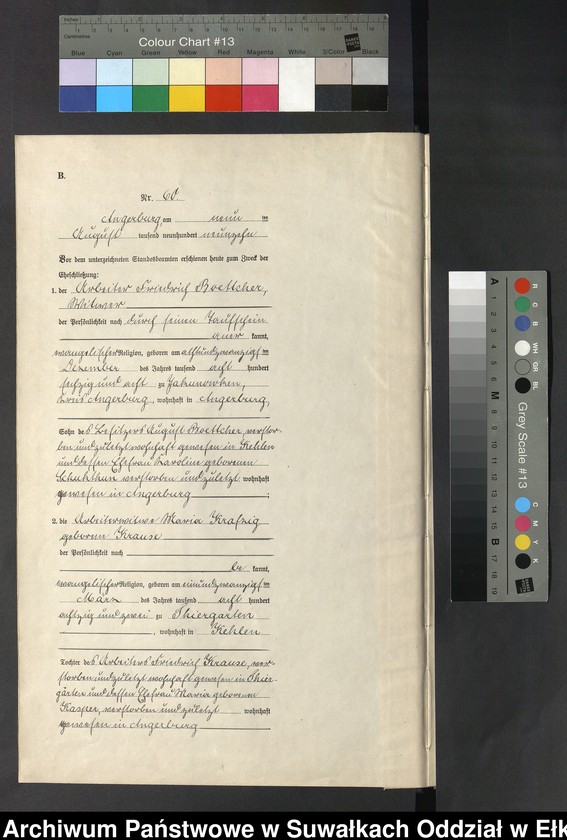 Colour Chart #13
Blue Cyan Green Yellow Red Magenta White 3/Color Black
B.
Nr. 60.
Angerburg, am neun ten
August tausend neunhundert neunzehn
Vor dem unterzeichneten Standesbeamten erschienen heute zum Zweck der
Eheschließung:
1. der Arbeiter Friedrich Boettcher,
Witwer
der Persönlichkeit nach durch seinen Taufschein
aner kannt,
evangelischer Religion, geboren am achtundzwanzigsten
Dezember des Jahres tausend acht hundert
sechzig und acht zu Jakunowken,
Kreis Angerburg, wohnhaft in Angerburg,
Sohn des Besitzers August Boettcher, verstor-
ben und zuletzt wohnhaft gewesen in Kehlen
und dessen Ehefrau Karoline geborenen
Schukthun verstorben und zuletzt wohnhaft
gewesen in Angerburg ;
2. die Arbeiterwitwe Maria Krafzig
geboren Krause
der Persönlichkeit nach
be kannt,
evangelischer Religion, geboren am einundzwanzigsten
März des Jahres tausend acht hundert
achtzig und zwei zu Thiergarten
, wohnhaft in Kehlen
Tochter des Arbeiters Friedrich Krause, ver-
storben und zuletzt wohnhaft gewesen in Thier-
gärten und dessen Ehefrau Maria geborenen
Kasper, verstorben und zuletzt wohnhaft
gewesen in Angerburg
A 1 2 3 4 5 6 M 8 9 10 11 12 13 14 15 B 17 18 19
R G B WH GR BL
Grey Scale #13
C M Y K
Archiwum Państwowe w Suwałkach Oddział w Ełk